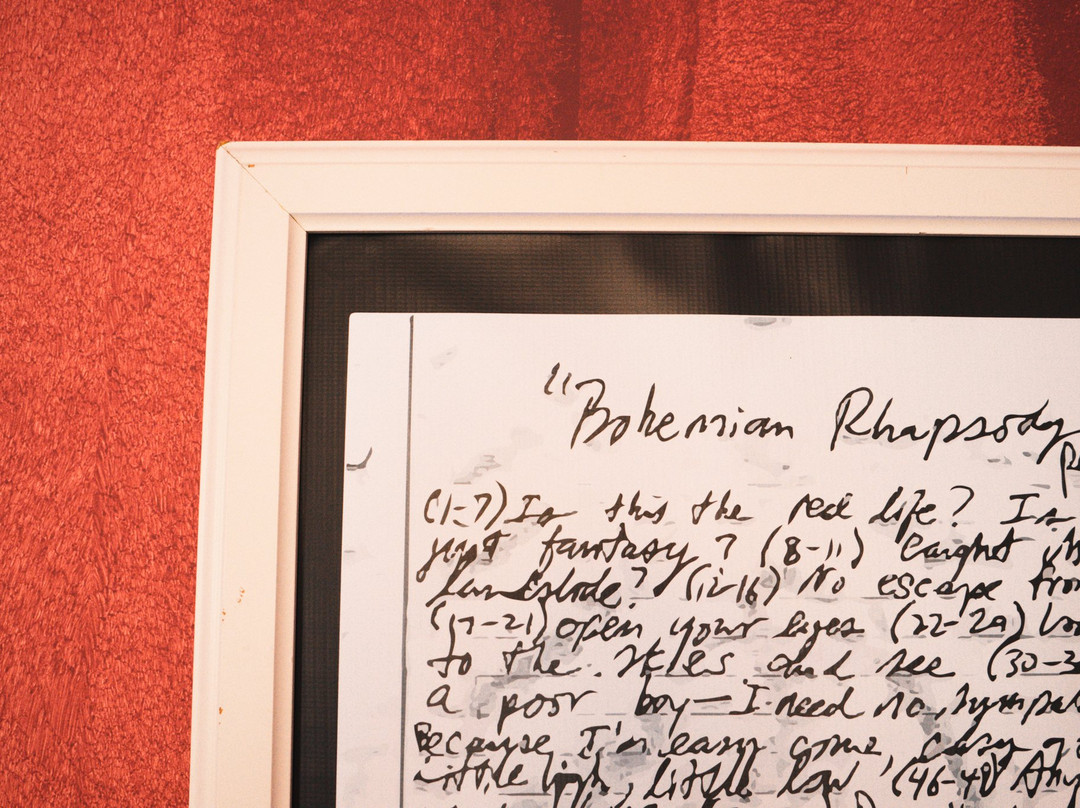 "Bohemian Rhapsody
(1-7) Is this the real life? Is
just fantasy? (8-11) Caught in
landslide? (12-16) No escape from
(17-21) open your eyes (22-29)
to the skies and see (30-3
a poor boy — I need no sympat
Because I'm easy come, easy g
little high, little low (46-48) Any